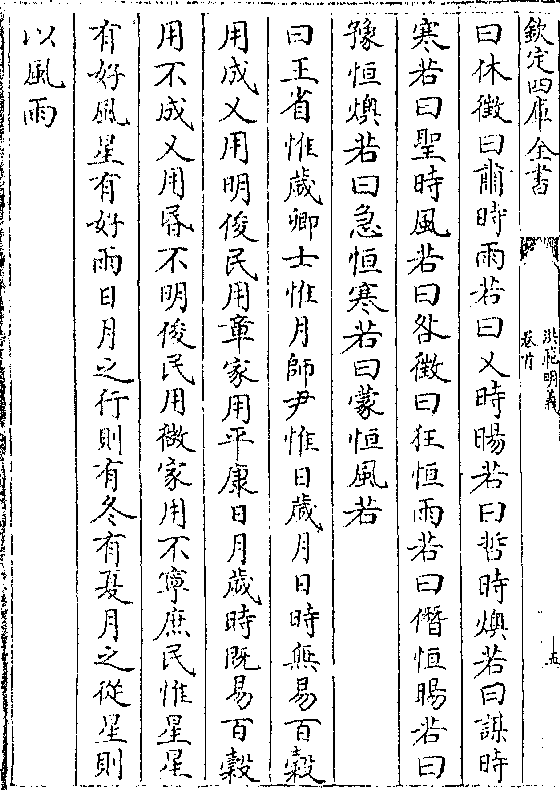 欽定四庫全書
洪範明義
卷首
五
曰休徵曰肅時雨若曰乂時暘若曰哲時燠若曰謀時
寒若曰聖時風若曰咎徵曰狂恒雨若曰僭恒暘若曰
豫恒燠若曰急恒寒若曰蒙恒風若
曰王省惟歲卿士惟月師尹惟日歲月日時無易百穀
用成乂用明俊民用章家用平康日月歲時既易百穀
用不成乂用昬不明俊民用微家用不寧庶民惟星星
有好風星有好雨日月之行則有冬有夏月之從星則
以風雨